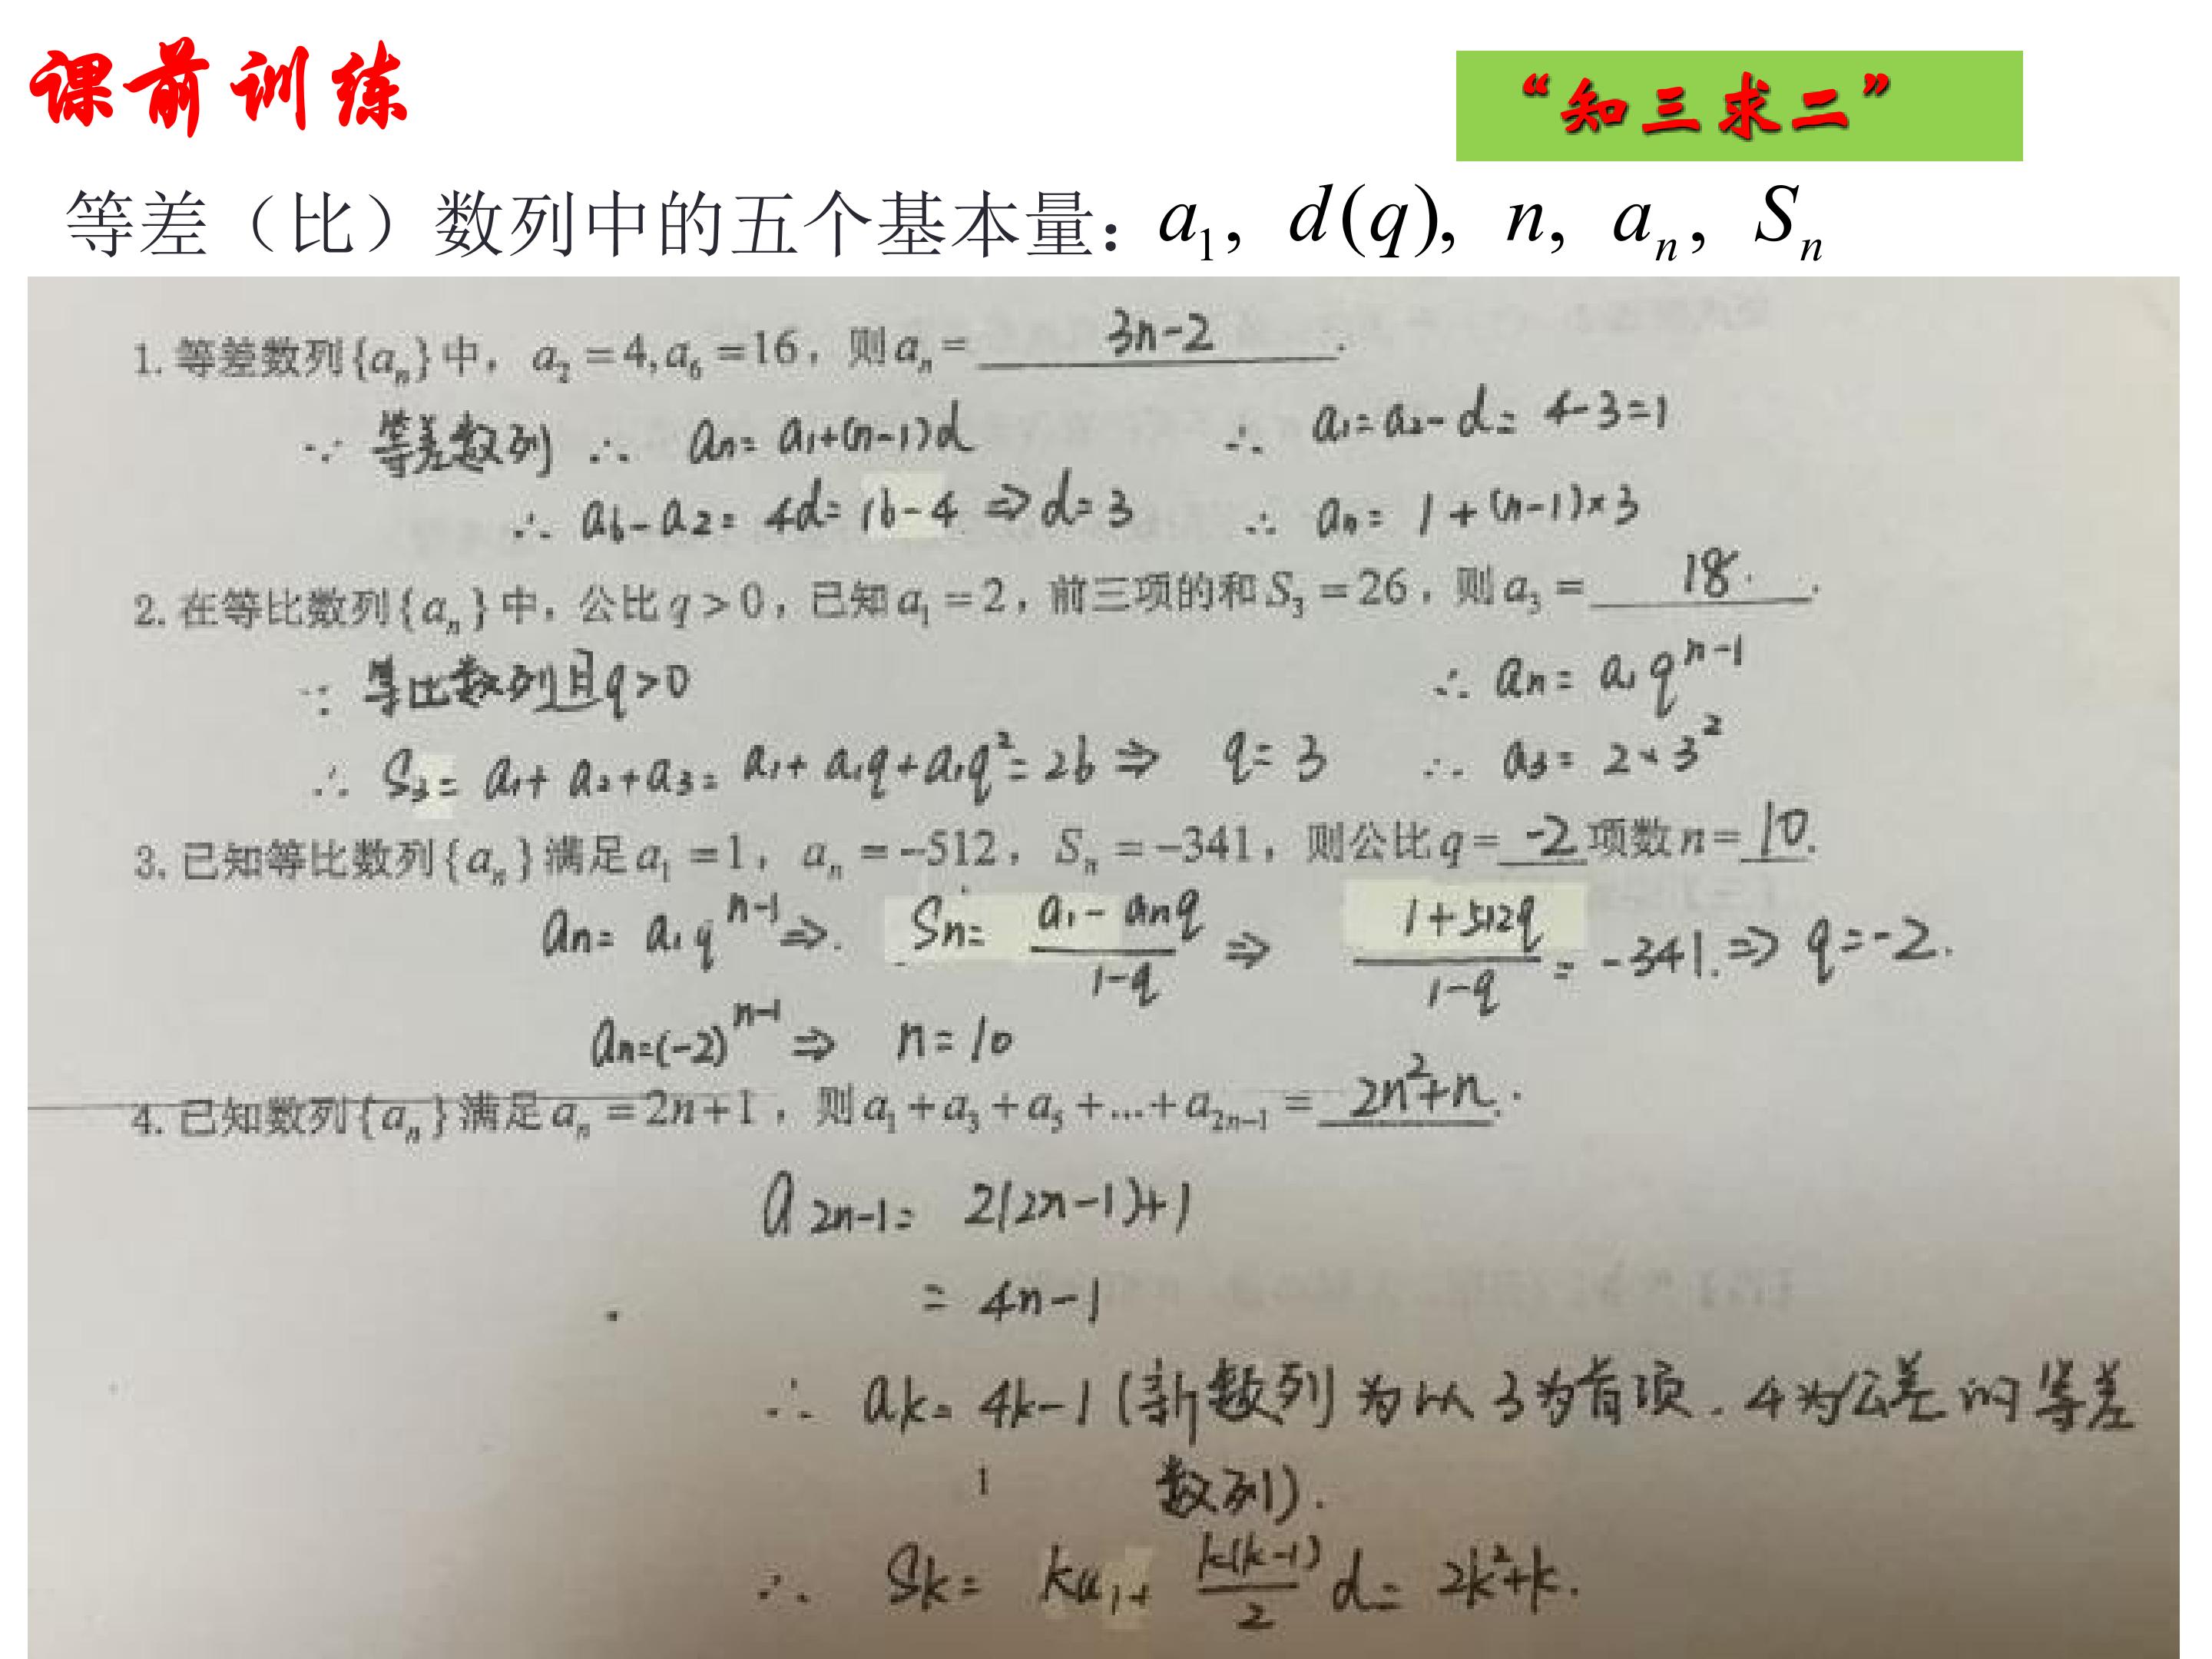 课前训练
“知三求二”
等差（比）数列中的五个基本量：a₁, d(q), n, aₙ, Sₙ
1. 等差数列{aₙ}中，a₂=4,a₆=16，则aₙ= 3n-2 .
∵ 等差数列 ∴ an=a₁+(n-1)d ∴ a₁=a₂-d=4-3=1
∴ a6-a2=4d=16-4 ⇒ d=3 ∴ an=1+(n-1)×3
2. 在等比数列{aₙ}中，公比q>0，已知a₁=2，前三项的和S₃=26，则a₃= 18. .
∵ 等比数列且q>0 ∴ an=a₁qⁿ⁻¹
∴ S₃=a₁+a₂+a₃=a₁+a₁q+a₁q²=26 ⇒ q=3 ∴ a₃=2×3²
3. 已知等比数列{aₙ}满足a₁=1，aₙ=-512，Sₙ=-341，则公比q= -2 项数n= 10.
an=a₁qⁿ⁻¹ ⇒. Sn=(a₁-anq)/(1-q) ⇒ (1+512q)/(1-q)=-341. ⇒ q=-2.
an=(-2)ⁿ⁻¹ ⇒ n=10
4. 已知数列{aₙ}满足aₙ=2n+1，则a₁+a₃+a₅+...+a₂ₙ₋₁= 2n²+n. .
a2n-1=2(2n-1)+1
=4n-1
∴ ak=4k-1 (新数列为以3为首项.4为公差的等差
数列).
∴ Sk=ka₁+k(k-1)/2 d=2k²+k.